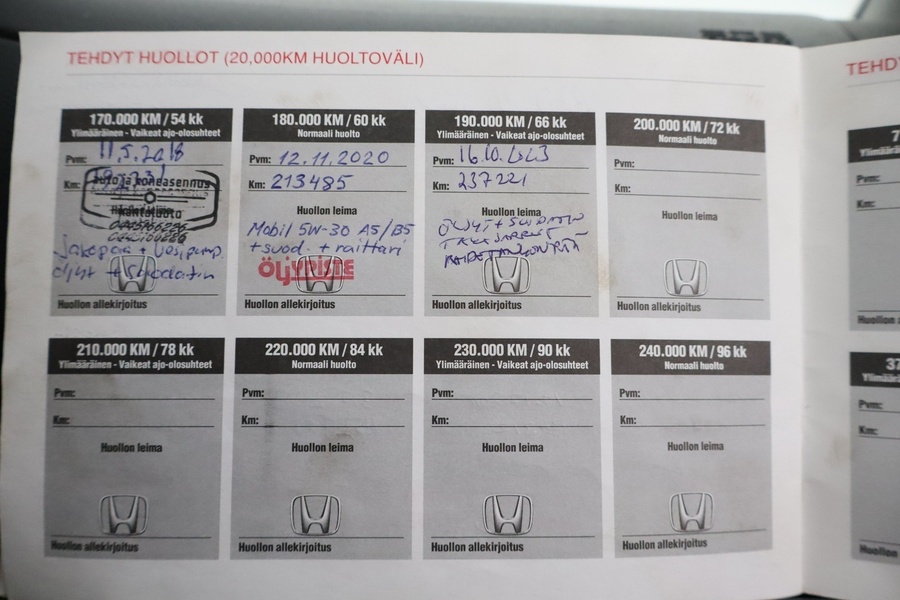 TEHDYT HUOLLOT (20,000KM HUOLTOVÄLI)
170.000 KM / 54 kk
Ylimääräinen - Vaikeat ajo-olosuhteet
Pvm: 11.5.2018
Km:
Auto ja koneasennus
Huollon leima
Jakopää + vesipump.
öljyt + suodatin
Huollon allekirjoitus
180.000 KM / 60 kk
Normaali huolto
Pvm: 12.11.2020
Km: 213485
Huollon leima
Mobil 5W-30 A5/B5
+ suod. + raittari
ÖLJYPISTE
Huollon allekirjoitus
190.000 KM / 66 kk
Ylimääräinen - Vaikeat ajo-olosuhteet
Pvm: 16.10.
Km: 237221
Huollon leima
ÖLJYT + SUODATIN
Huollon allekirjoitus
200.000 KM / 72 kk
Normaali huolto
Pvm:
Km:
Huollon leima
Huollon allekirjoitus
210.000 KM / 78 kk
Ylimääräinen - Vaikeat ajo-olosuhteet
Pvm:
Km:
Huollon leima
Huollon allekirjoitus
220.000 KM / 84 kk
Normaali huolto
Pvm:
Km:
Huollon leima
Huollon allekirjoitus
230.000 KM / 90 kk
Ylimääräinen - Vaikeat ajo-olosuhteet
Pvm:
Km:
Huollon leima
Huollon allekirjoitus
240.000 KM / 96 kk
Normaali huolto
Pvm:
Km:
Huollon leima
Huollon allekirjoitus
TEHDY
Pvm:
Km:
Huollon
Pvm:
Km:
Huollon